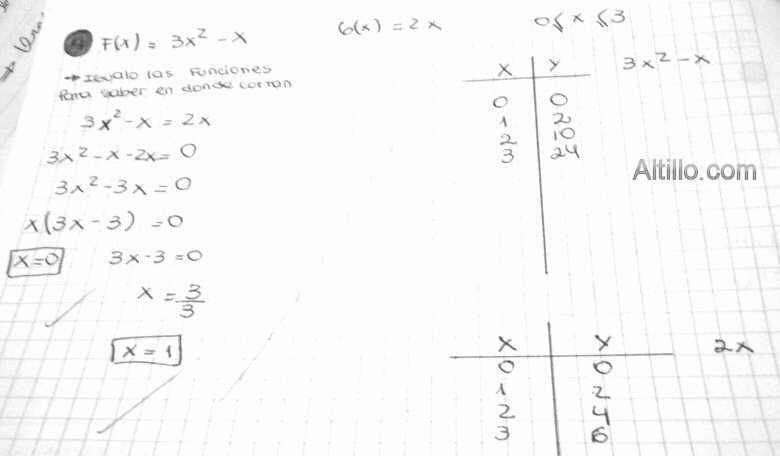 F(x) = 3x² - x
G(x) = 2x
0 ≤ x ≤ 3
→ Igualo las funciones
Para saber en donde cortan
3x² - x = 2x
3x² - x - 2x = 0
3x² - 3x = 0
x(3x - 3) = 0
x = 0
3x - 3 = 0
x = 3/3
x = 1
x y 3x² - x
0 0
1 2
2 10
3 24
Altillo.com
x y 2x
0 0
1 2
2 4
3 6